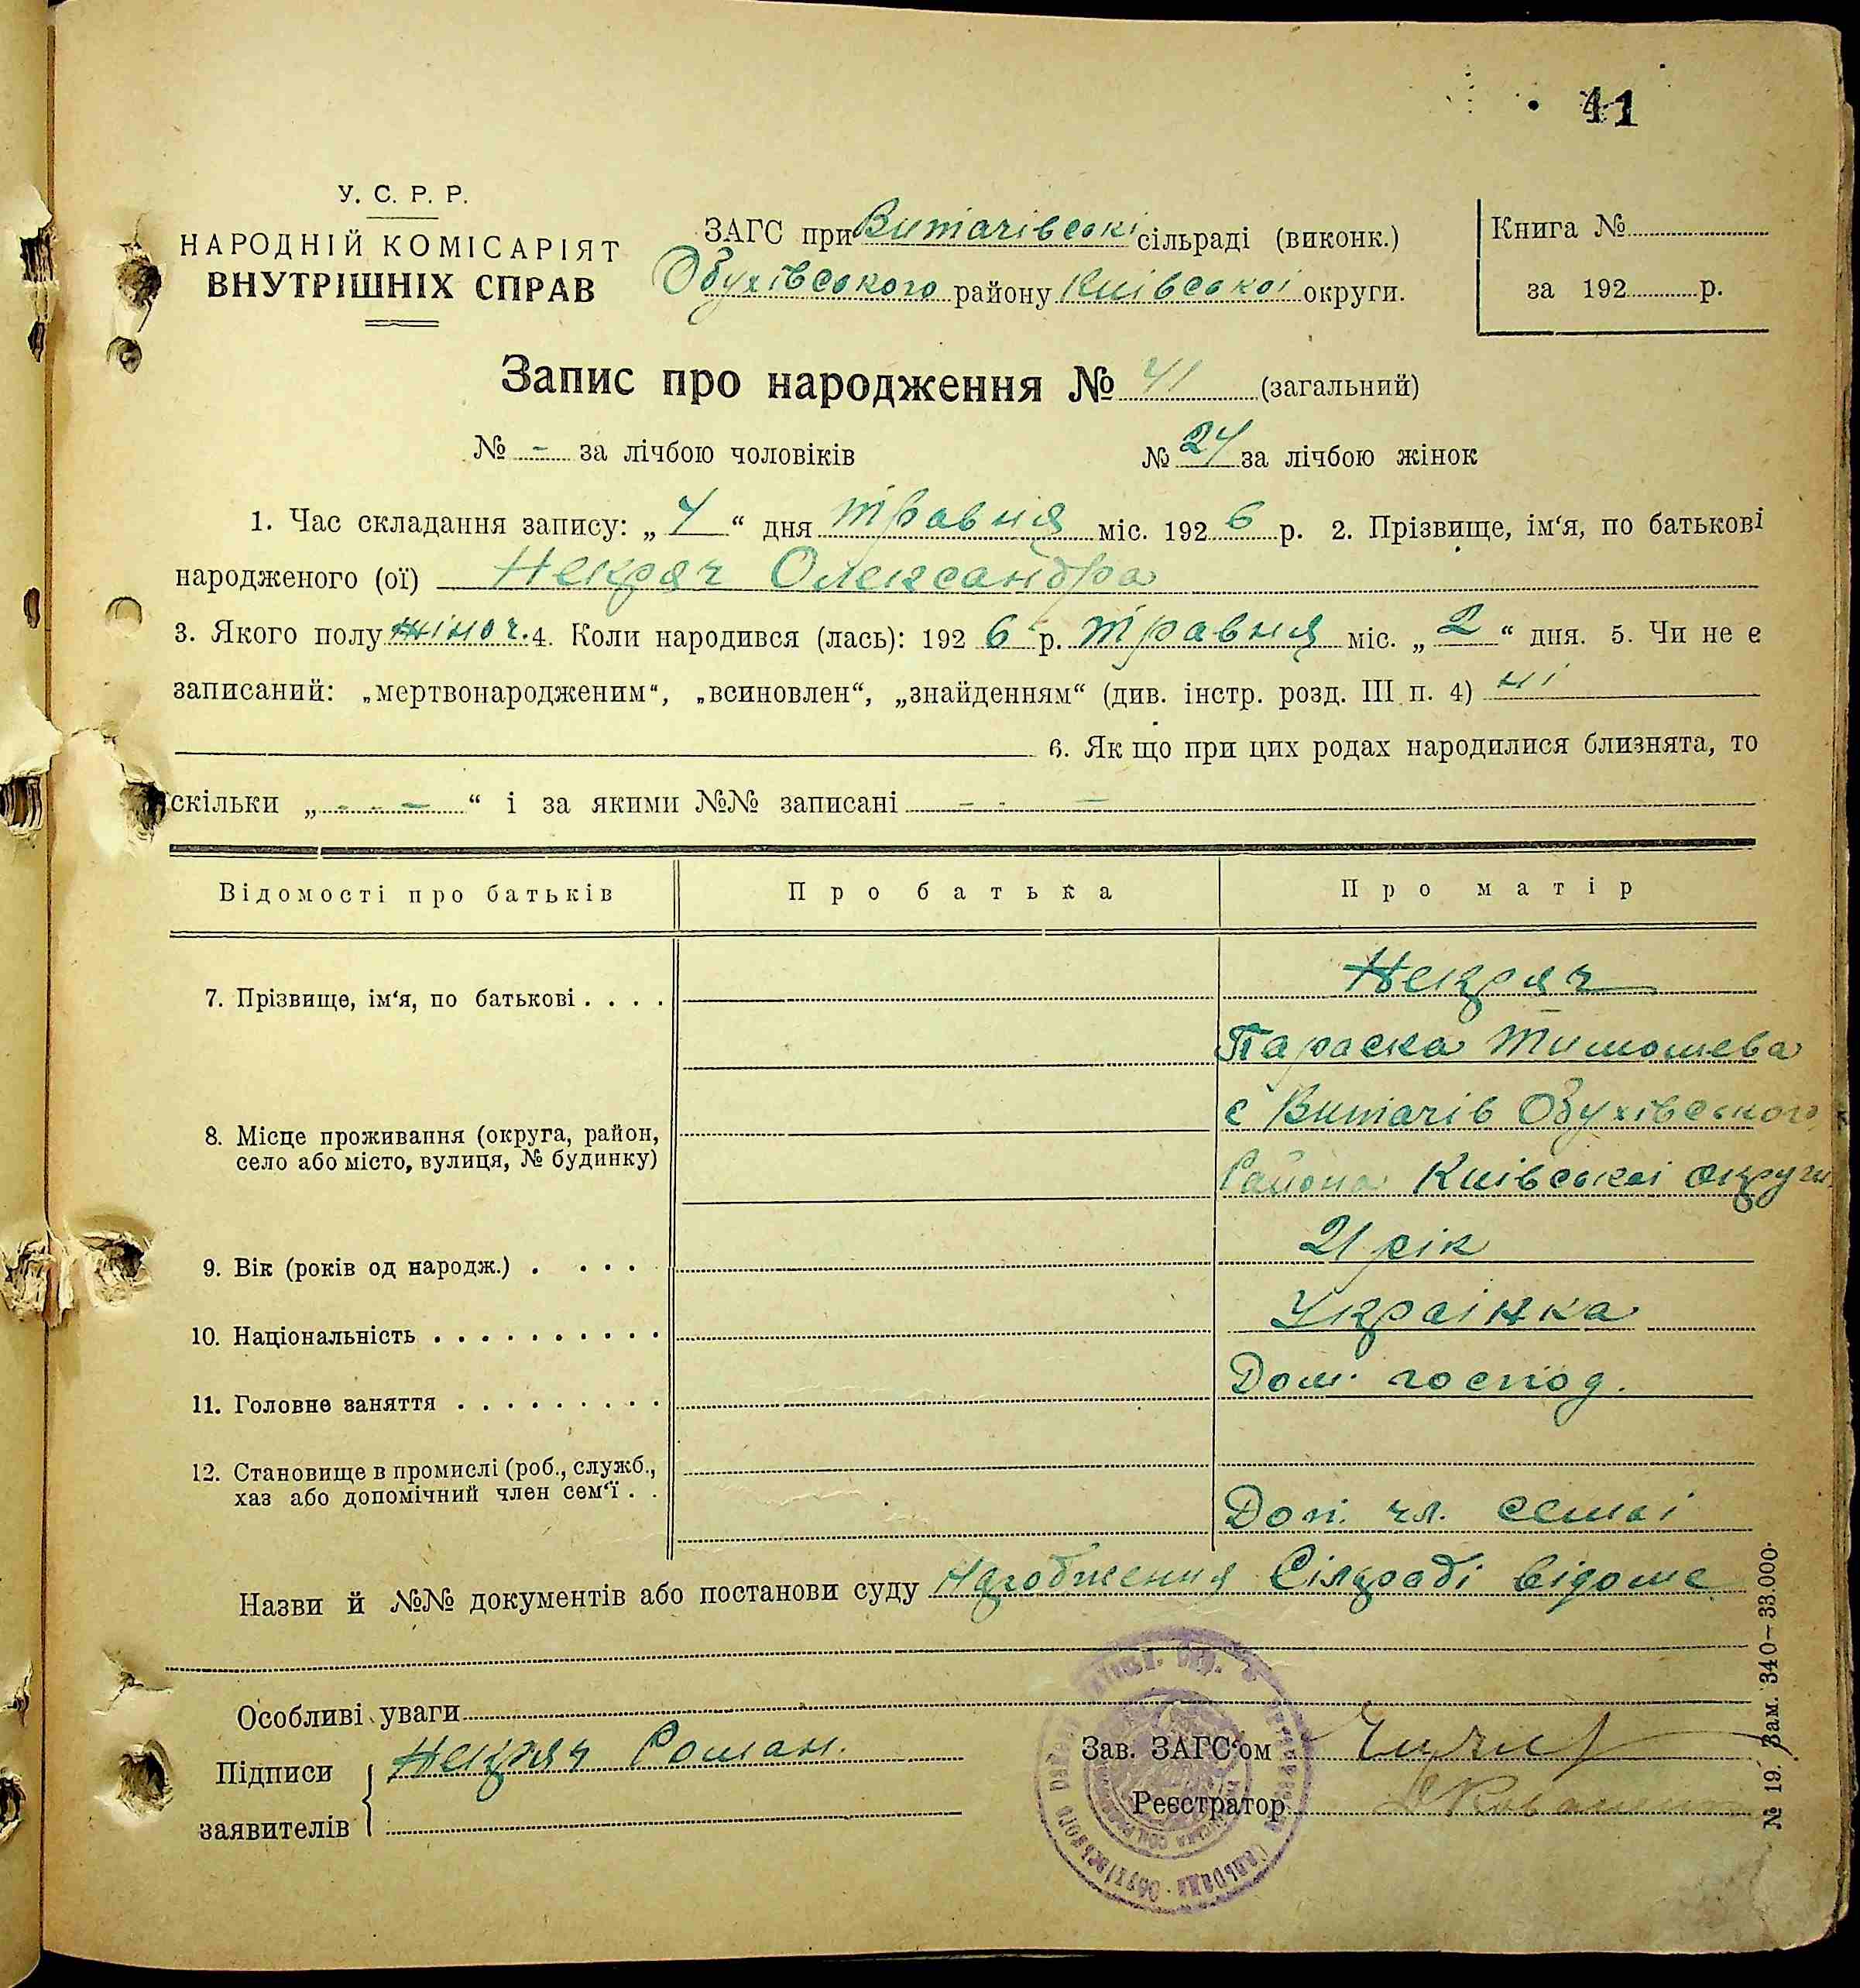 41
У. С. Р. Р.
НАРОДНІЙ КОМІСАРІЯТ
ВНУТРІШНІХ СПРАВ
ЗАГС при Витачівські сільраді (виконк.)
Обухівського району Киівськоі округи.
Книга №
за 192 р.
Запис про народження № 41 (загальний)
№ - за лічбою чоловіків № 24 за лічбою жінок
1. Час складання запису: „ 4 “ дня травня міс. 192 6 р. 2. Прізвище, ім‘я, по батькові
народженого (ої) Некряч Олександра
3. Якого полу жіноч. 4. Коли народився (лась): 192 6 р. травня міс. „ 2 “ дня. 5. Чи не є
записаний: „мертвонародженим“, „всиновлен“, „знайденням“ (див. інстр. розд. III п. 4) ні
6. Як що при цих родах народилися близнята, то
скільки „ - - - “ і за якими №№ записані - - -
Відомості про батьків Про батька Про матір
7. Прізвище, ім‘я, по батькові . . . . Некряч
Параска Тимошева
с Витачів Обухівського
8. Місце проживання (округа, район,
село або місто, вулиця, № будинку)
Района Киівськоі округи
9. Вік (років од народж.) . . . . 21 рік
10. Національність . . . . . . . . . . Украінка
11. Головне заняття . . . . . . . . . Дом. господ.
12. Становище в промислі (роб., служб.,
хаз або допомічний член сем‘ї . .
Доп. чл. семьі
Назви й №№ документів або постанови суду Народження Сілраді відоме
Особливі уваги
Підписи
заявителів
Некряч Роман.
Зав. ЗАГС‘ом
Реєстратор
№ 19. Зам. 340—33.000.